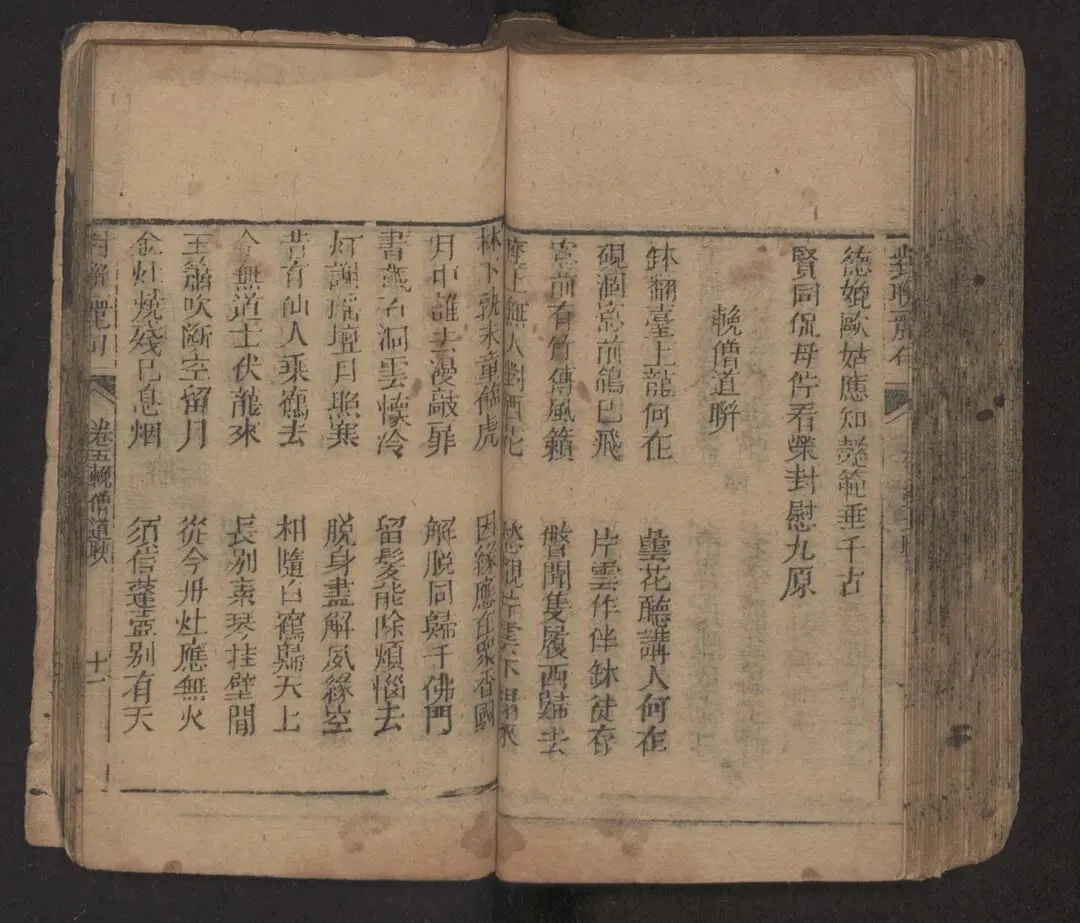 德媲歐姑應知懿範垂千古
賢同侃母佇看榮封慰九原
輓僧道聨
鉢翻臺上龍何在
曇花聽講人何在
硯涸窓前鴿已飛
片雲作伴鉢徒存
窓前有竹傳風籟
瞥聞隻履西歸去
座上無人對雨花
愁觀片雲不歸來
林下孰來
虎
因緣應在眾香國
月中誰去漫敲
解脱同歸千佛門
石洞雲懷冷
留髮能除煩惱去
灯謝瑶壇月照寒
脱身盡解夙緣空
昔有仙人乘鶴去
相隨白鶴歸天上
今無道士伏龍來
長別素琴挂壁間
玉簫吹斷空留月
從今丹灶應無火
金灶燒殘已息烟
須信蓬壺別有天
卷五輓僧道聨
十一